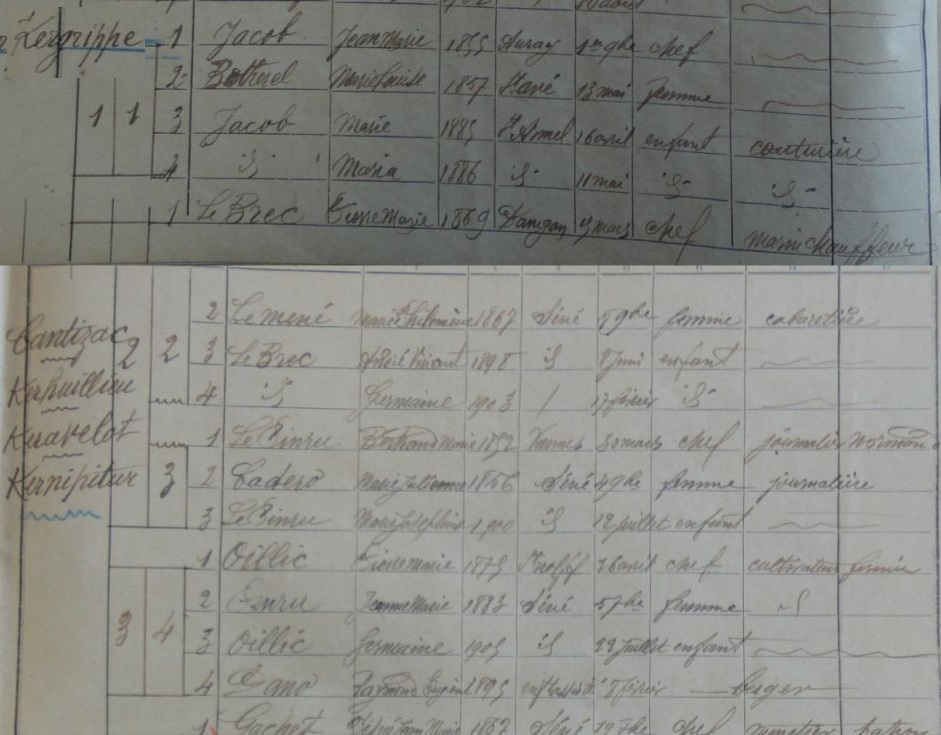 Kergrippe 1 Jacob Jean Marie 1855 Auray 1er 9bre chef
2 Botherel Marie Louise 1857 13 mai femme
1 1 3 Jacob Marie 1885 St Armel 16 avril enfant couturière
4 id Maria 1886 id 11 mai id id
1 Le Brec Pierre Marie 1869 Damgan 9 mars chef marin chauffeur
2 Le Mené Marie Philomène 1867 Séné 9bre femme cabaretière
Cantizac 2 2 3 Le Brec André Vincent 1898 id 8 juin enfant
Kerhuillieu 4 id Germaine 1903 / 17 février id
Keravelot 1 Marie 1852 Vannes 30 mars chef journalier
Kernipitur 3 2 Cadero Marie Julienne 1856 Séné 4 9bre femme journalière
3 Marie Josephine 1900 id 12 juillet enfant
1 Oillic Pierre Marie 1875 26 avril chef cultivateur fermier
2 Jeanne Marie 1883 Séné 5 7bre femme id
3 4 3 Oillic Germaine 1905 id 22 juillet enfant
4 Dano Raymond Eugène 1895 8 février berger
1 Gachet Jean Marie 1867 Séné 19 7bre chef patron